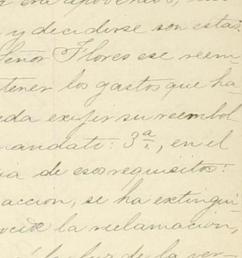 y decidirse son estas
Señor Flores ese reem
tener los gastos que ha
eda exijir su reembol
mandato: 3ª, en el
ia de esos requisitos:
accion, se ha extingui
ocide la reclamacion,
la luz de la ver